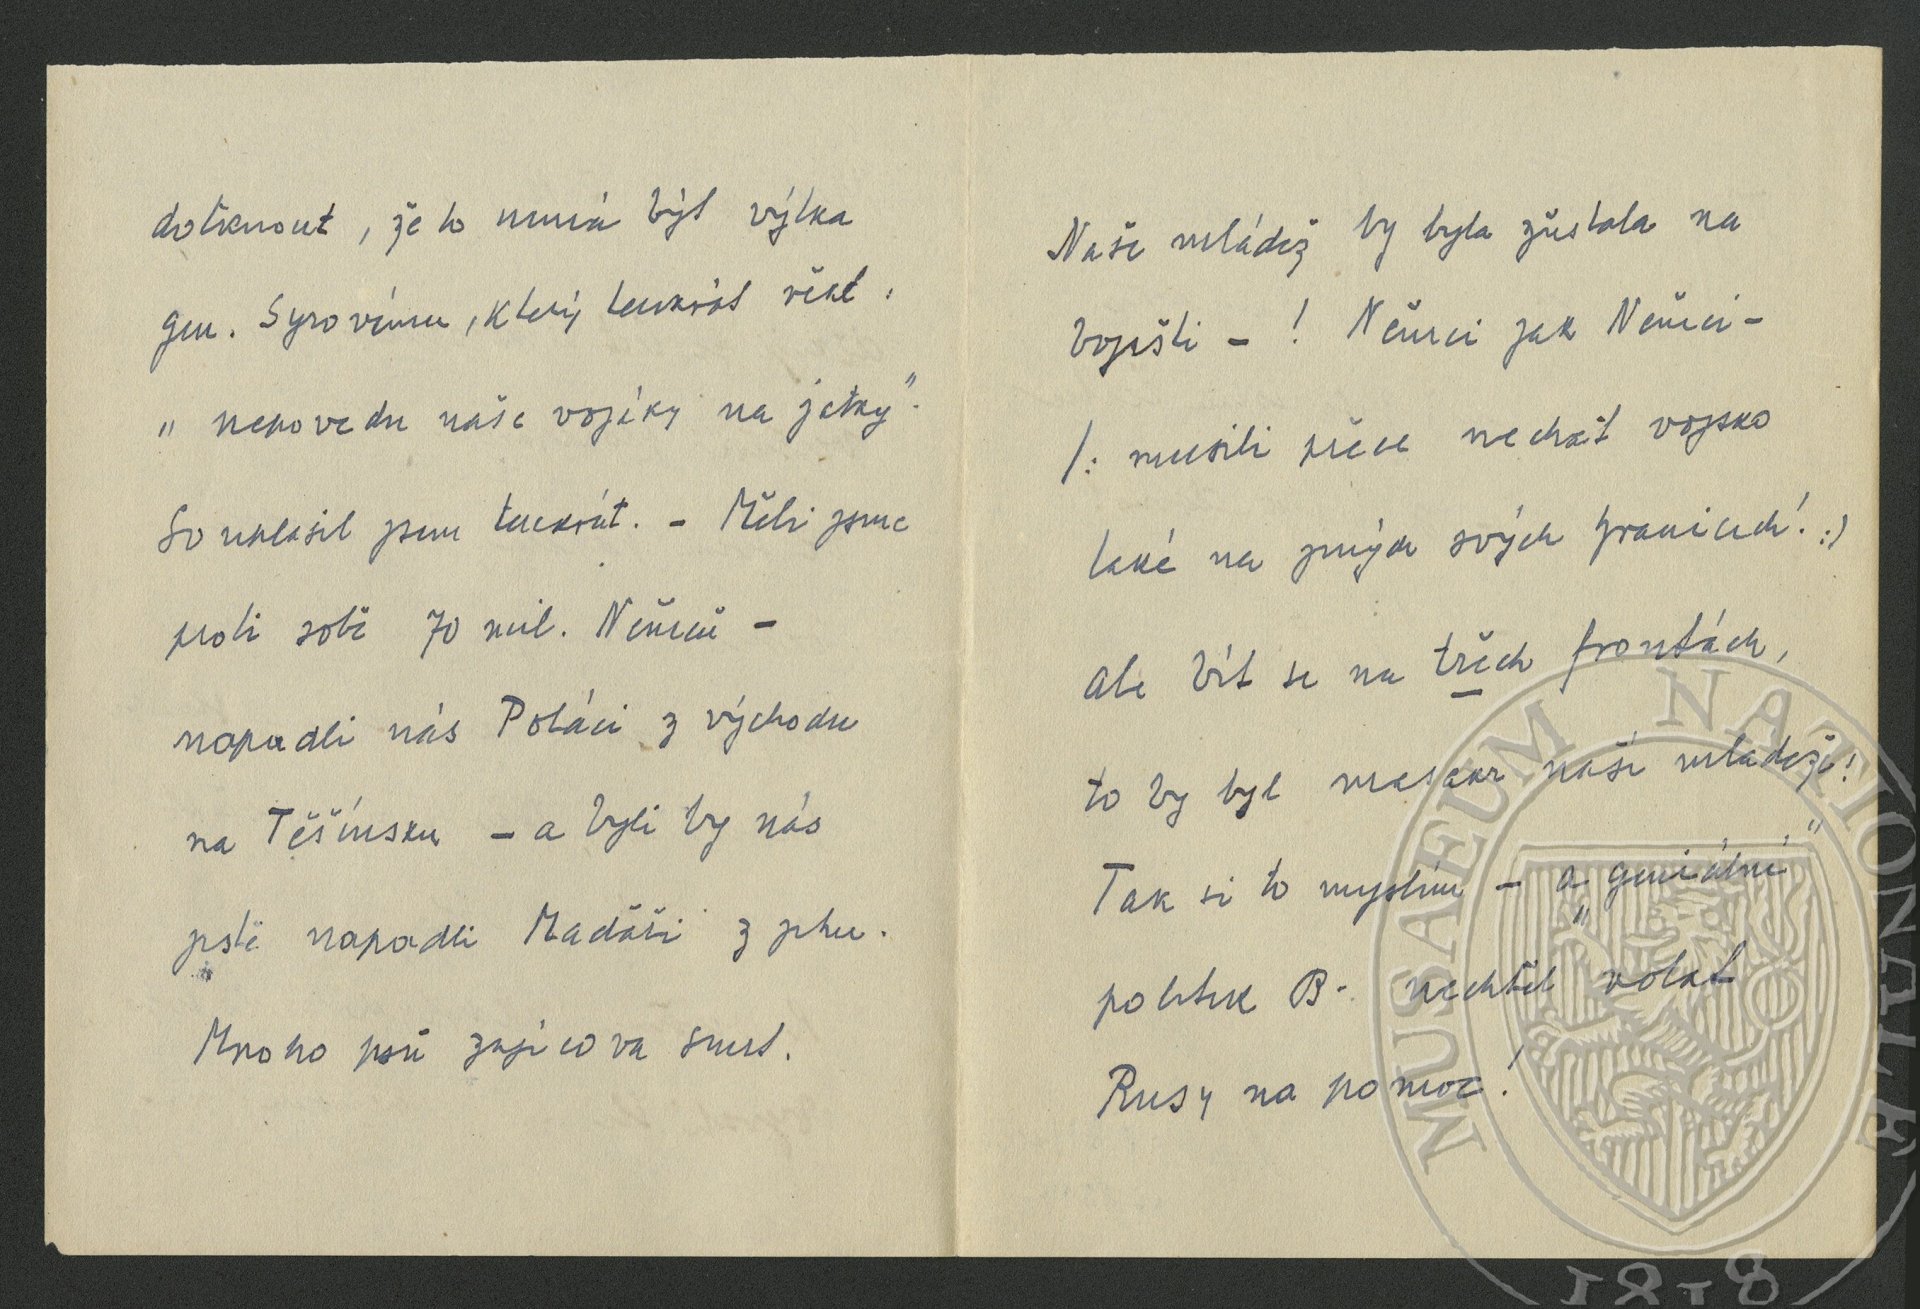 dotknout, že to nemá být výtka
gen. Syrovému, který tenkrát řekl:
„nepovedu naše vojáky na jatky".
Souhlasil jsem tenkrát. – Měli jsme
proti sobě 70 mil. Němců –
napadli nás Poláci z východu
na Těšínsku – a byli by nás
jistě napadli Maďaři z jihu.
Mnoho psů zajícova smrt.
Naše mládež by byla zůstala na
bojišti – ! Němci jak Němci –
/: musili přece nechat vojsko
také na jiných svých hranicích! :/
ale bít se na třech frontách,
to by byl masakr naší mládeže!
Tak si to myslím – a „geniální"
politik B. nechtěl volat
Rusy na pomoc!
MUSAEUM NATIONALE
1818